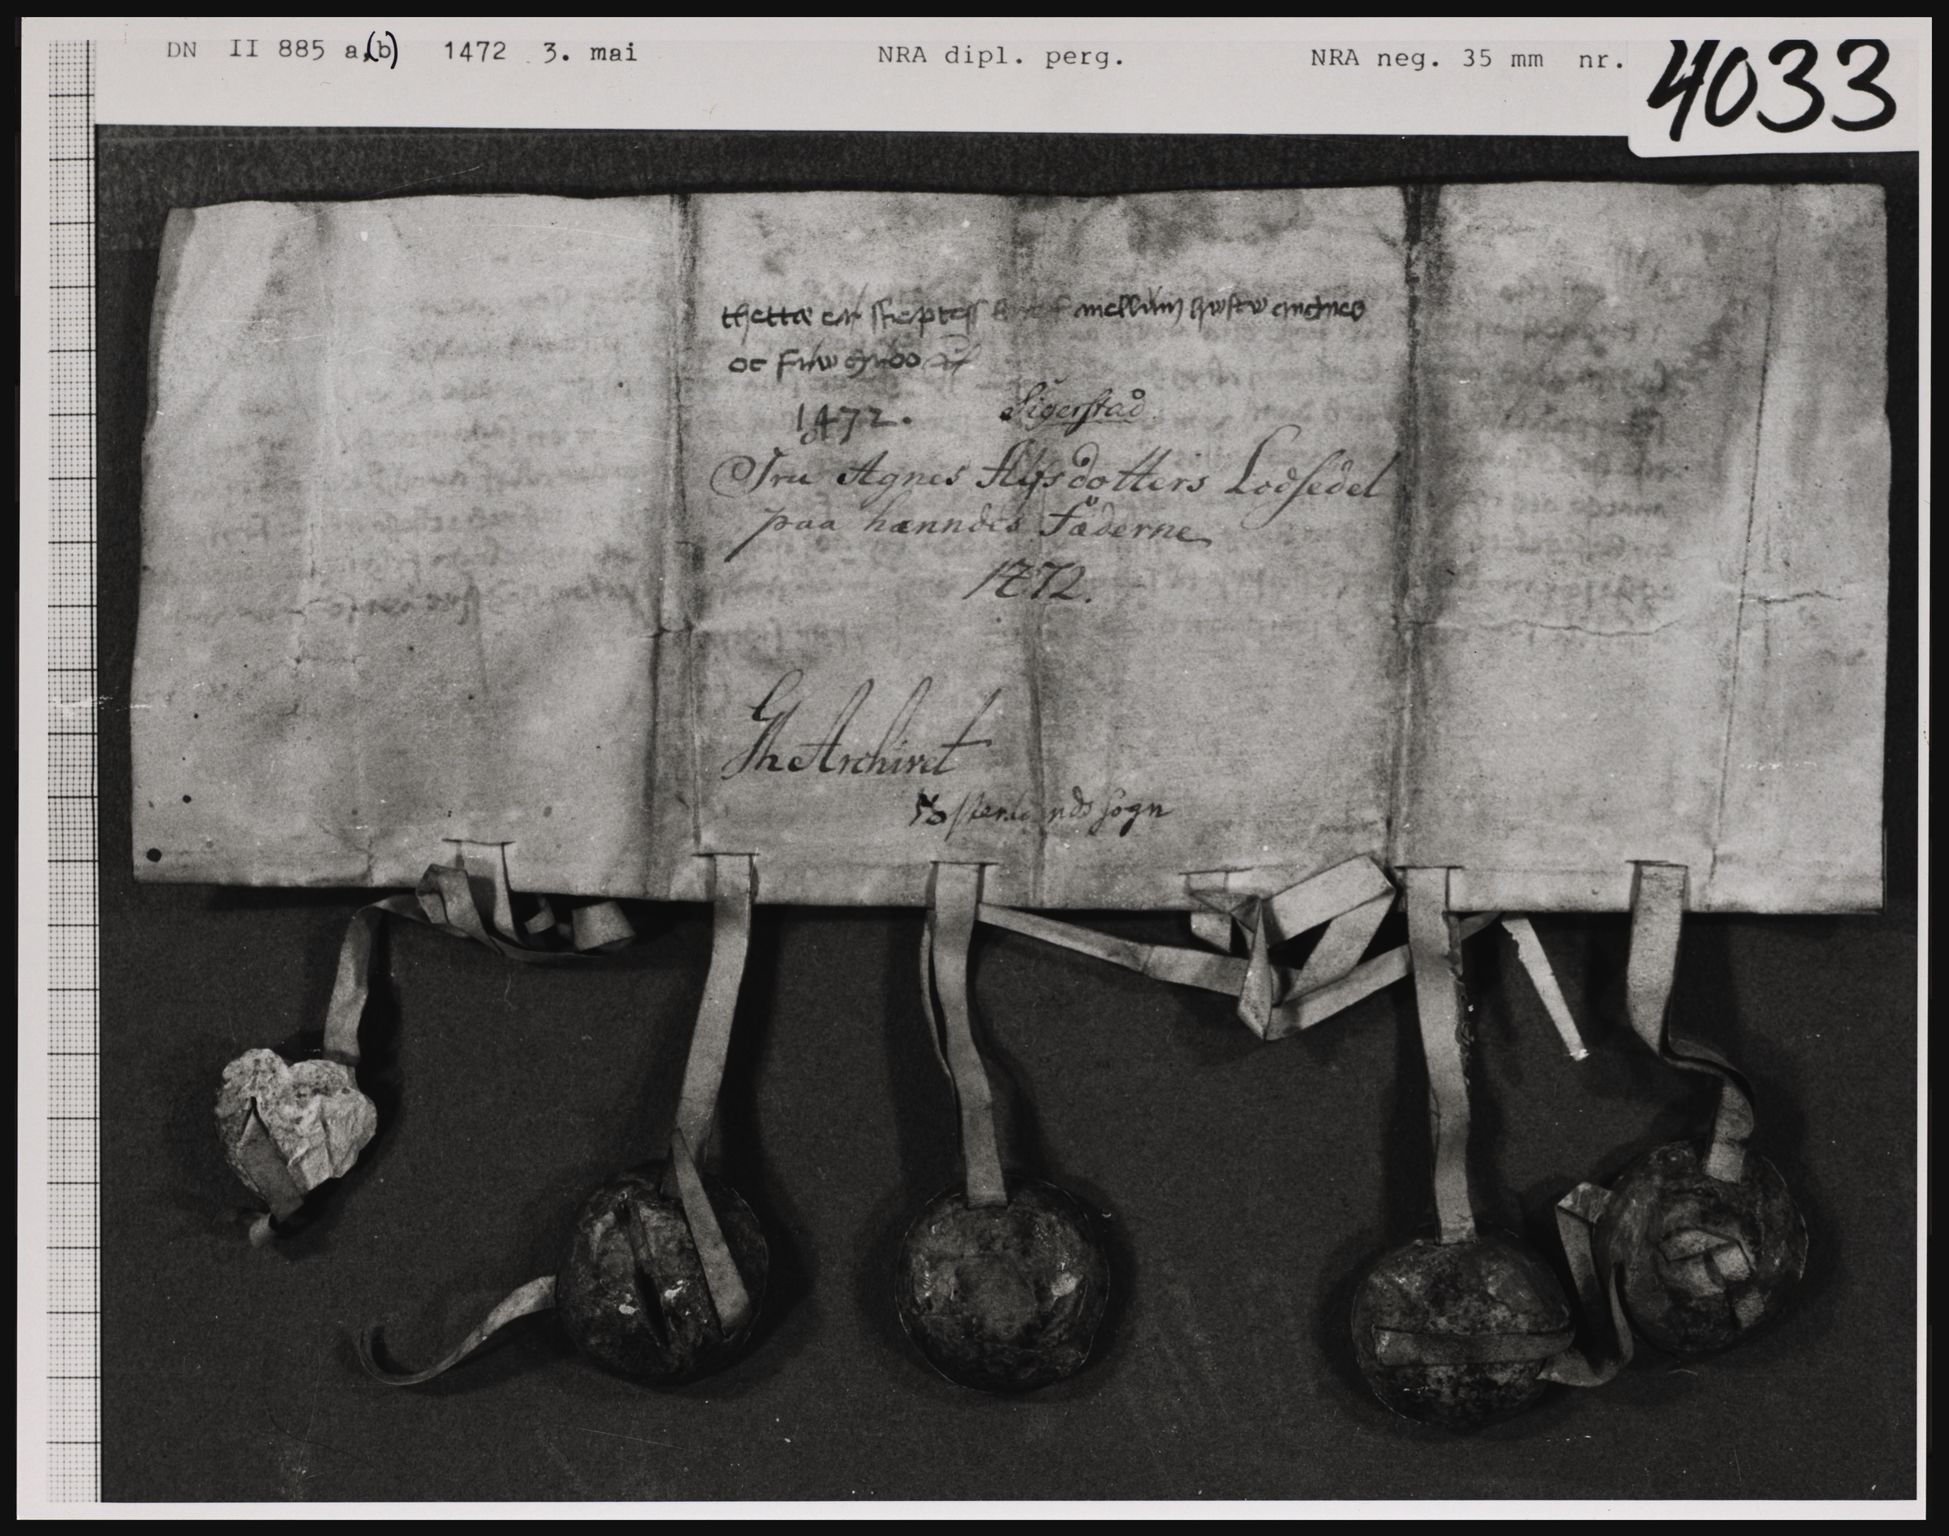 DN II 885 a(b) 1472 3. mai NRA dipl. perg. NRA neg. 35 mm nr. 4033
thettæ ær skeptess breff mellum hustw angnes
oc Frw
1472. Sigerstad
Fru Agnes Alfsdotters Lodsedel
paa hænndes Fæderne
1472.
Archivet
sogn